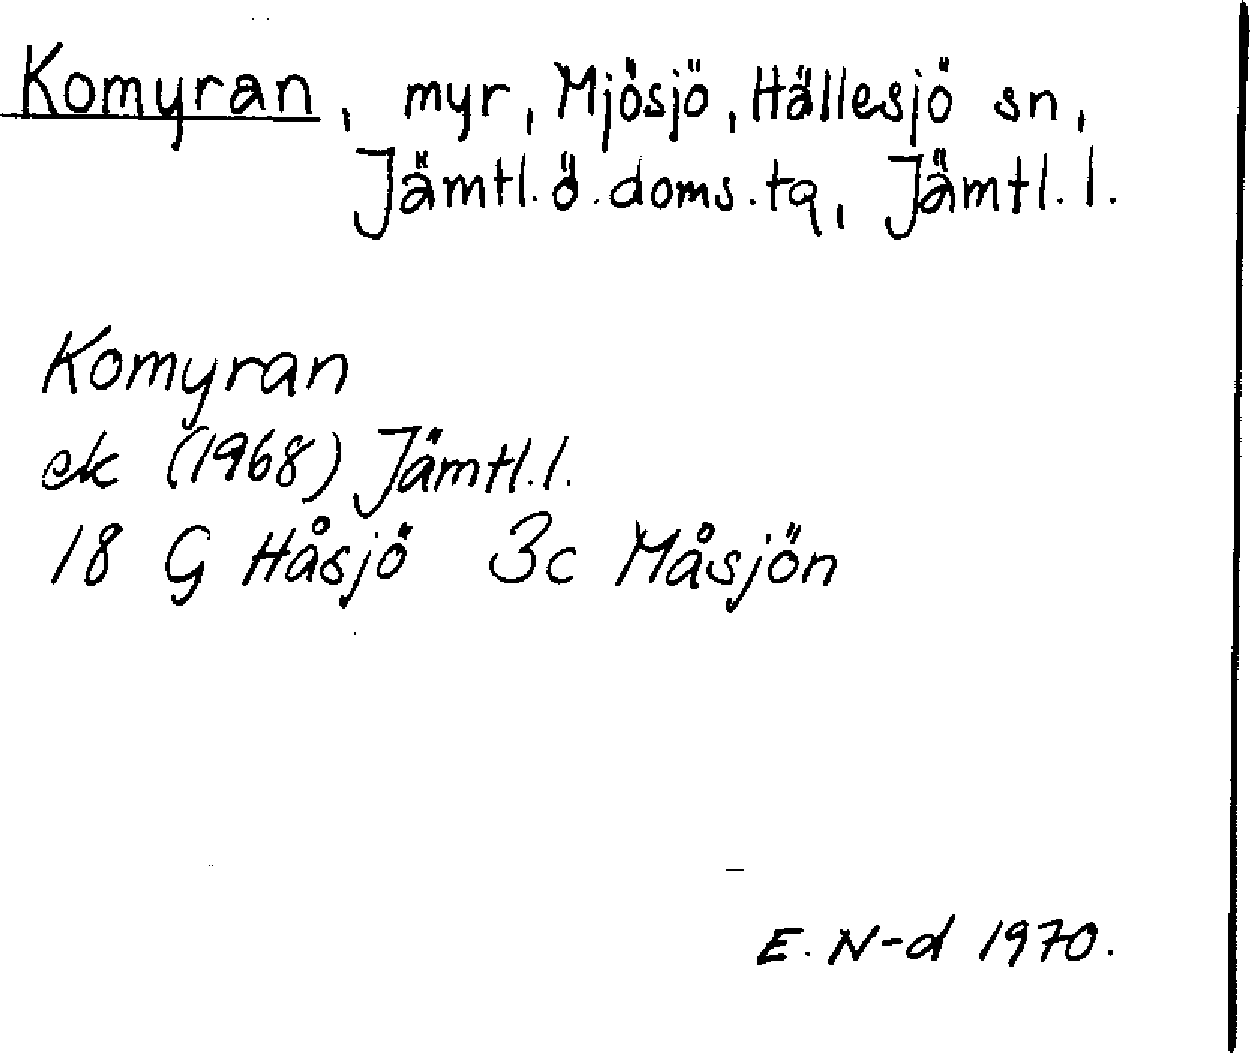 Komyran, myr, Mjösjö, Hällesjö sn,
Jämtl. ö. doms. tq, Jämtl. l.
Komyran
ek (1968) Jämtl. l.
18 G Håsjö 3c Måsjön
E. N-d 1970.